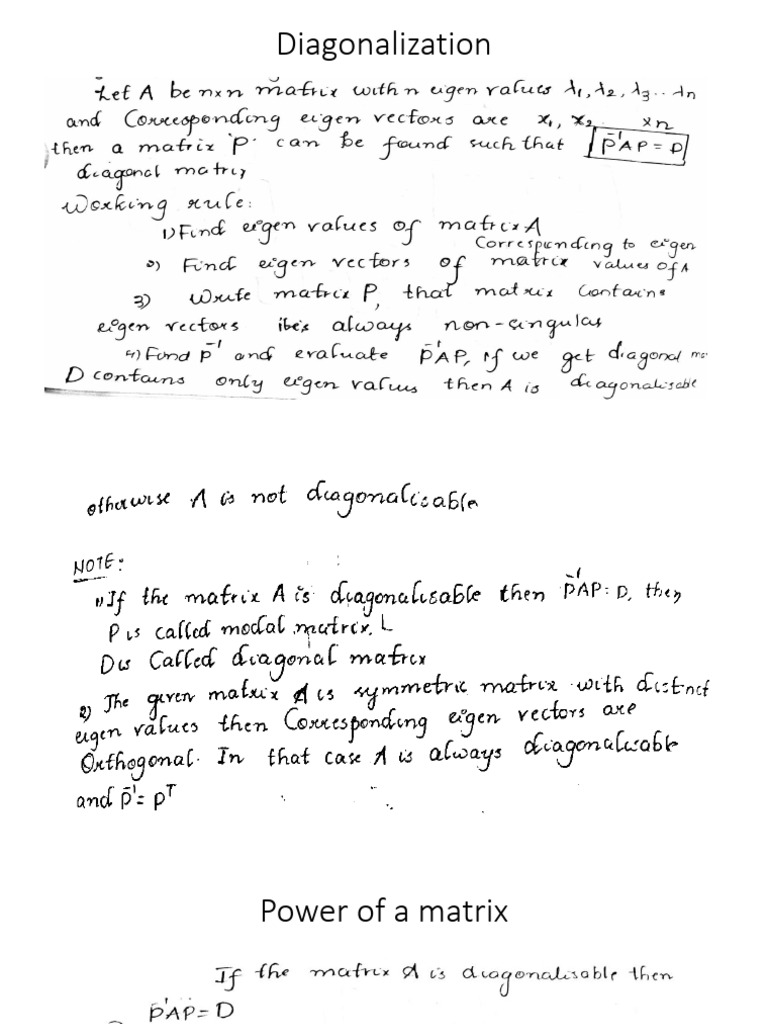 Diagonalization
Let A be n×n matrix with n eigen values λ₁, λ₂, λ₃.. λn
and Corresponding eigen vectors are x₁, x₂.. xn
then a matrix 'P' can be found such that P⁻¹AP = D
diagonal matrix
Working rule:
1) Find eigen values of matrix A
2) Find eigen vectors of matrix Corresponding to eigen values of A
3) Write matrix P, that matrix Contains
eigen vectors it is always non-singular
4) Find P⁻¹ and evaluate P⁻¹AP, if we get diagonal
D contains only eigen values then A is diagonalisable
otherwise A is not diagonalisable
NOTE:
1) If the matrix A is diagonalisable then P⁻¹AP = D, then
P is called modal matrix,
D is Called diagonal matrix
2) The given matrix A is symmetric matrix with distinct
eigen values then Corresponding eigen vectors are
Orthogonal. In that case A is always diagonalisable
and P⁻¹ = Pᵀ
Power of a matrix
If the matrix A is diagonalisable then
P⁻¹AP = D